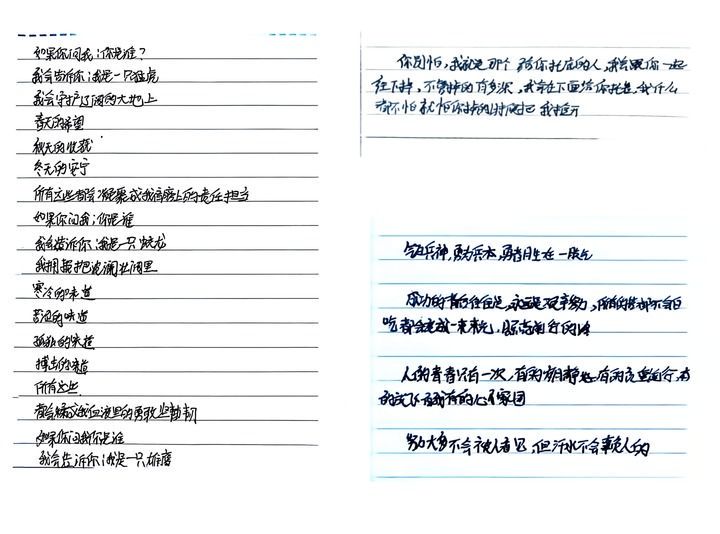 如果你问我:你是谁?
我会告诉你:我是一只猛虎
我会守护辽阔的大地上
春天的希望
秋天的收获
冬天的安宁
所有这些都会凝聚成我肩膀上的责任担当
如果你问我:你是谁
我会告诉你:我是一只蛟龙
我拥抱波澜壮阔里
寒冷的味道
苦涩的味道
孤独的味道
搏击的味道
所有这些
都会
我血液里的勇敢坚韧
如果你问我你是谁
我会告诉你:我是一只雄鹰
你别怕,我就是那个给你托底的人,我会跟你一起
往下掉,不管掉的有多深,我会在下面给你托着,我什么
都不怕就怕你掉的时候把我推开
气为兵神,勇为兵本,勇者胜在一股气
成功的背后往往是,永远是艰辛努力,所有的苦都不会白
吃都会变成一束光,照亮前行的路
人的青春只有一次,有的岁月静好,有的负重前行,有
的
家国
努力大多不会被人看见,但汗水不会辜负人的